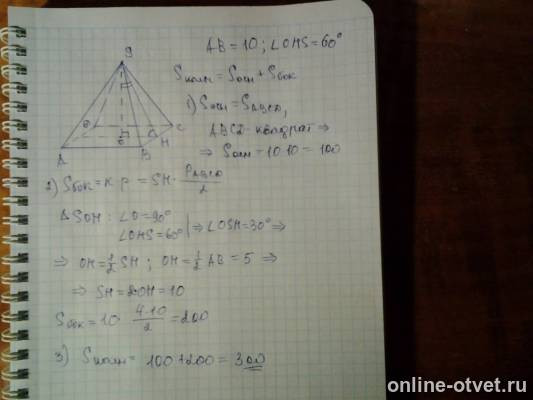 AB = 10 ; ∠OHS = 60°
Sполн = Sосн + Sбок
1) Sосн = SABCD,
ABCD - квадрат ⇒
⇒ Sосн = 10·10 = 100
S
C
H
A
B
2) Sбок = k p = SH · PABCD/2
Δ SOH : ∠O = 90°
∠OHS = 60° | ⇒ ∠OSH = 30° ⇒
⇒ OH = 1/2 SH ; OH = 1/2 AB = 5 ⇒
⇒ SH = 2OH = 10
Sбок = 10 · 4·10/2 = 200
3) Sполн = 100 + 200 = 300
online-otvet.ru